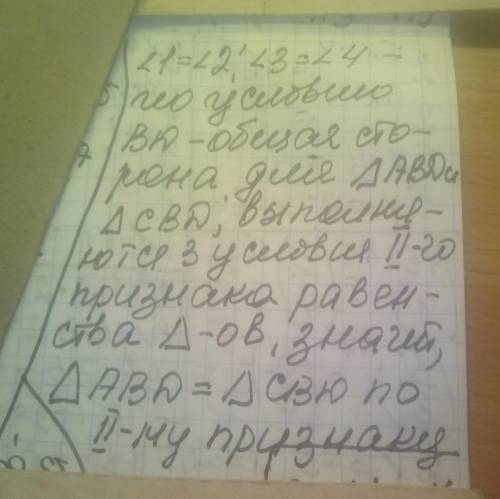 ∠1=∠2, ∠3=∠4 –
по условию
BD – общая сто-
рона для △ABD и
△CBD, выполня-
ются 3 условия II-го
признака равен-
ства △-ов, значит,
△ABD = △CBD по
II-му признаку